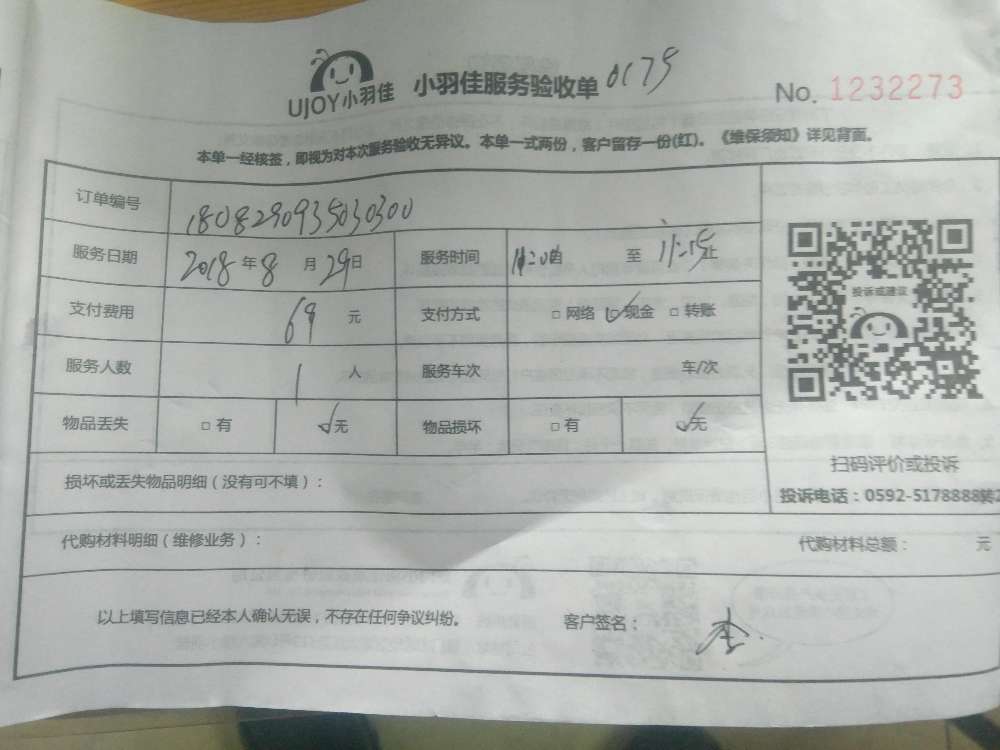 UJOY小羽佳 小羽佳服务验收单 0179
No. 1232273
本单一经核签，即视为对本次服务验收无异议。本单一式两份，客户留存一份(红)。《维保须知》详见背面。
订单编号 1808290935030300
服务日期 2018 年 8 月 29 日 服务时间 11:20 由 至 11:25 止
支付费用 69 元 支付方式 □ 网络 ☑ 现金 □ 转账
服务人数 1 人 服务车次 车/次
物品丢失 □ 有 ☑ 无 物品损坏 □ 有 ☑ 无
投诉或建议
扫码评价或投诉
投诉电话：0592-5178888转2
损坏或丢失物品明细（没有可不填）：
代购材料明细（维修业务）： 代购材料总额： 元
以上填写信息已经本人确认无误，不存在任何争议纠纷。 客户签名：